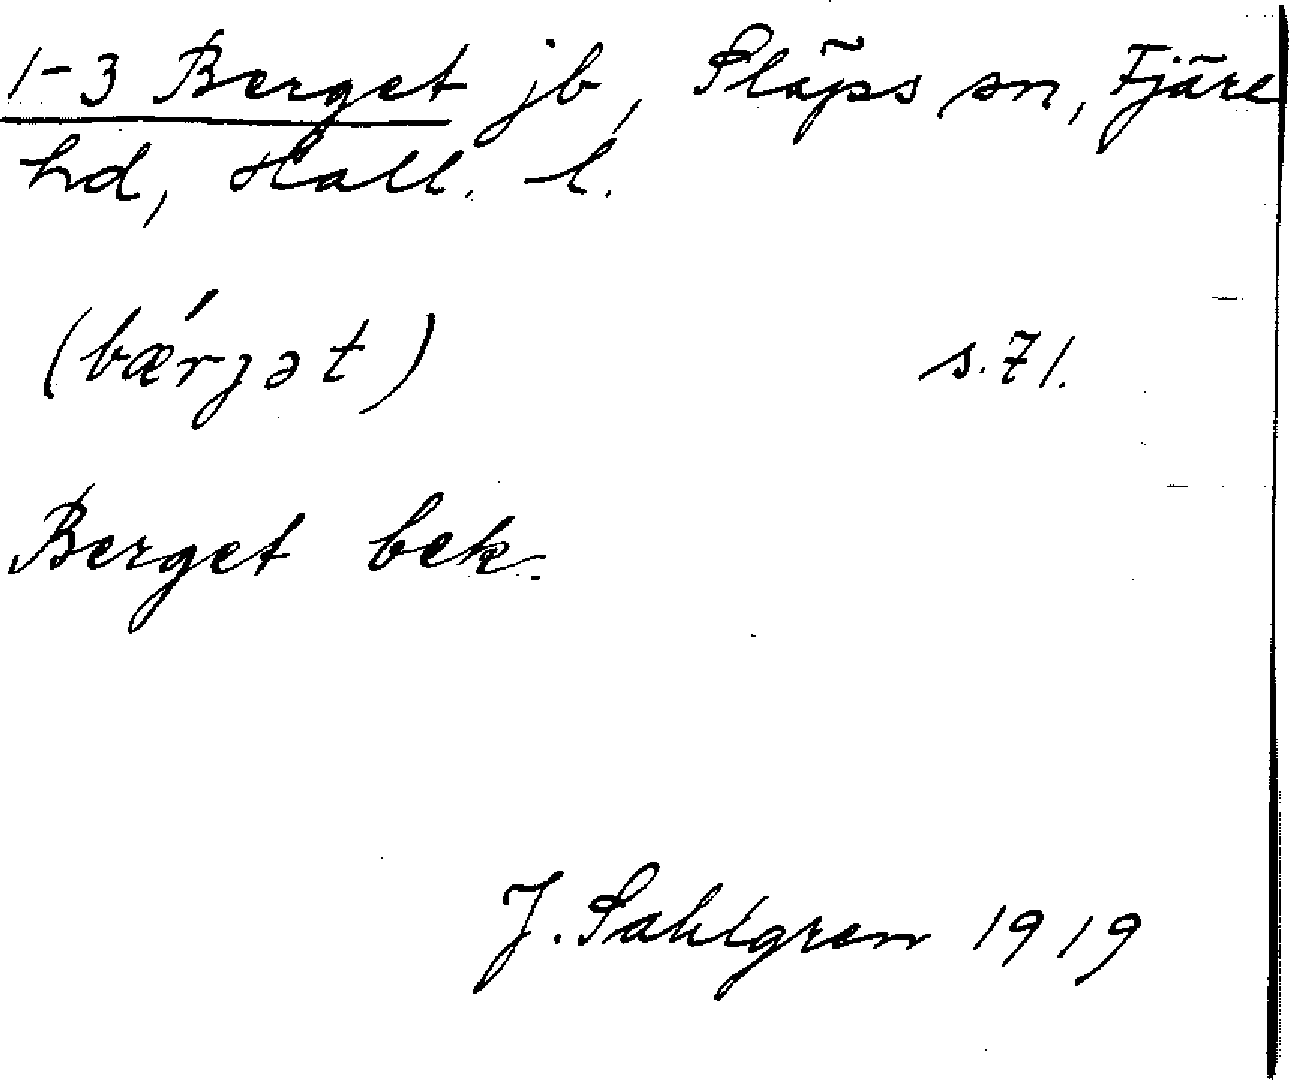 1-3 Berget jb, Släps sn, Fjäre
hd, Hall. l.
(bǽrjət) s. 71.
Berget bek.
J. Sahlgren 1919